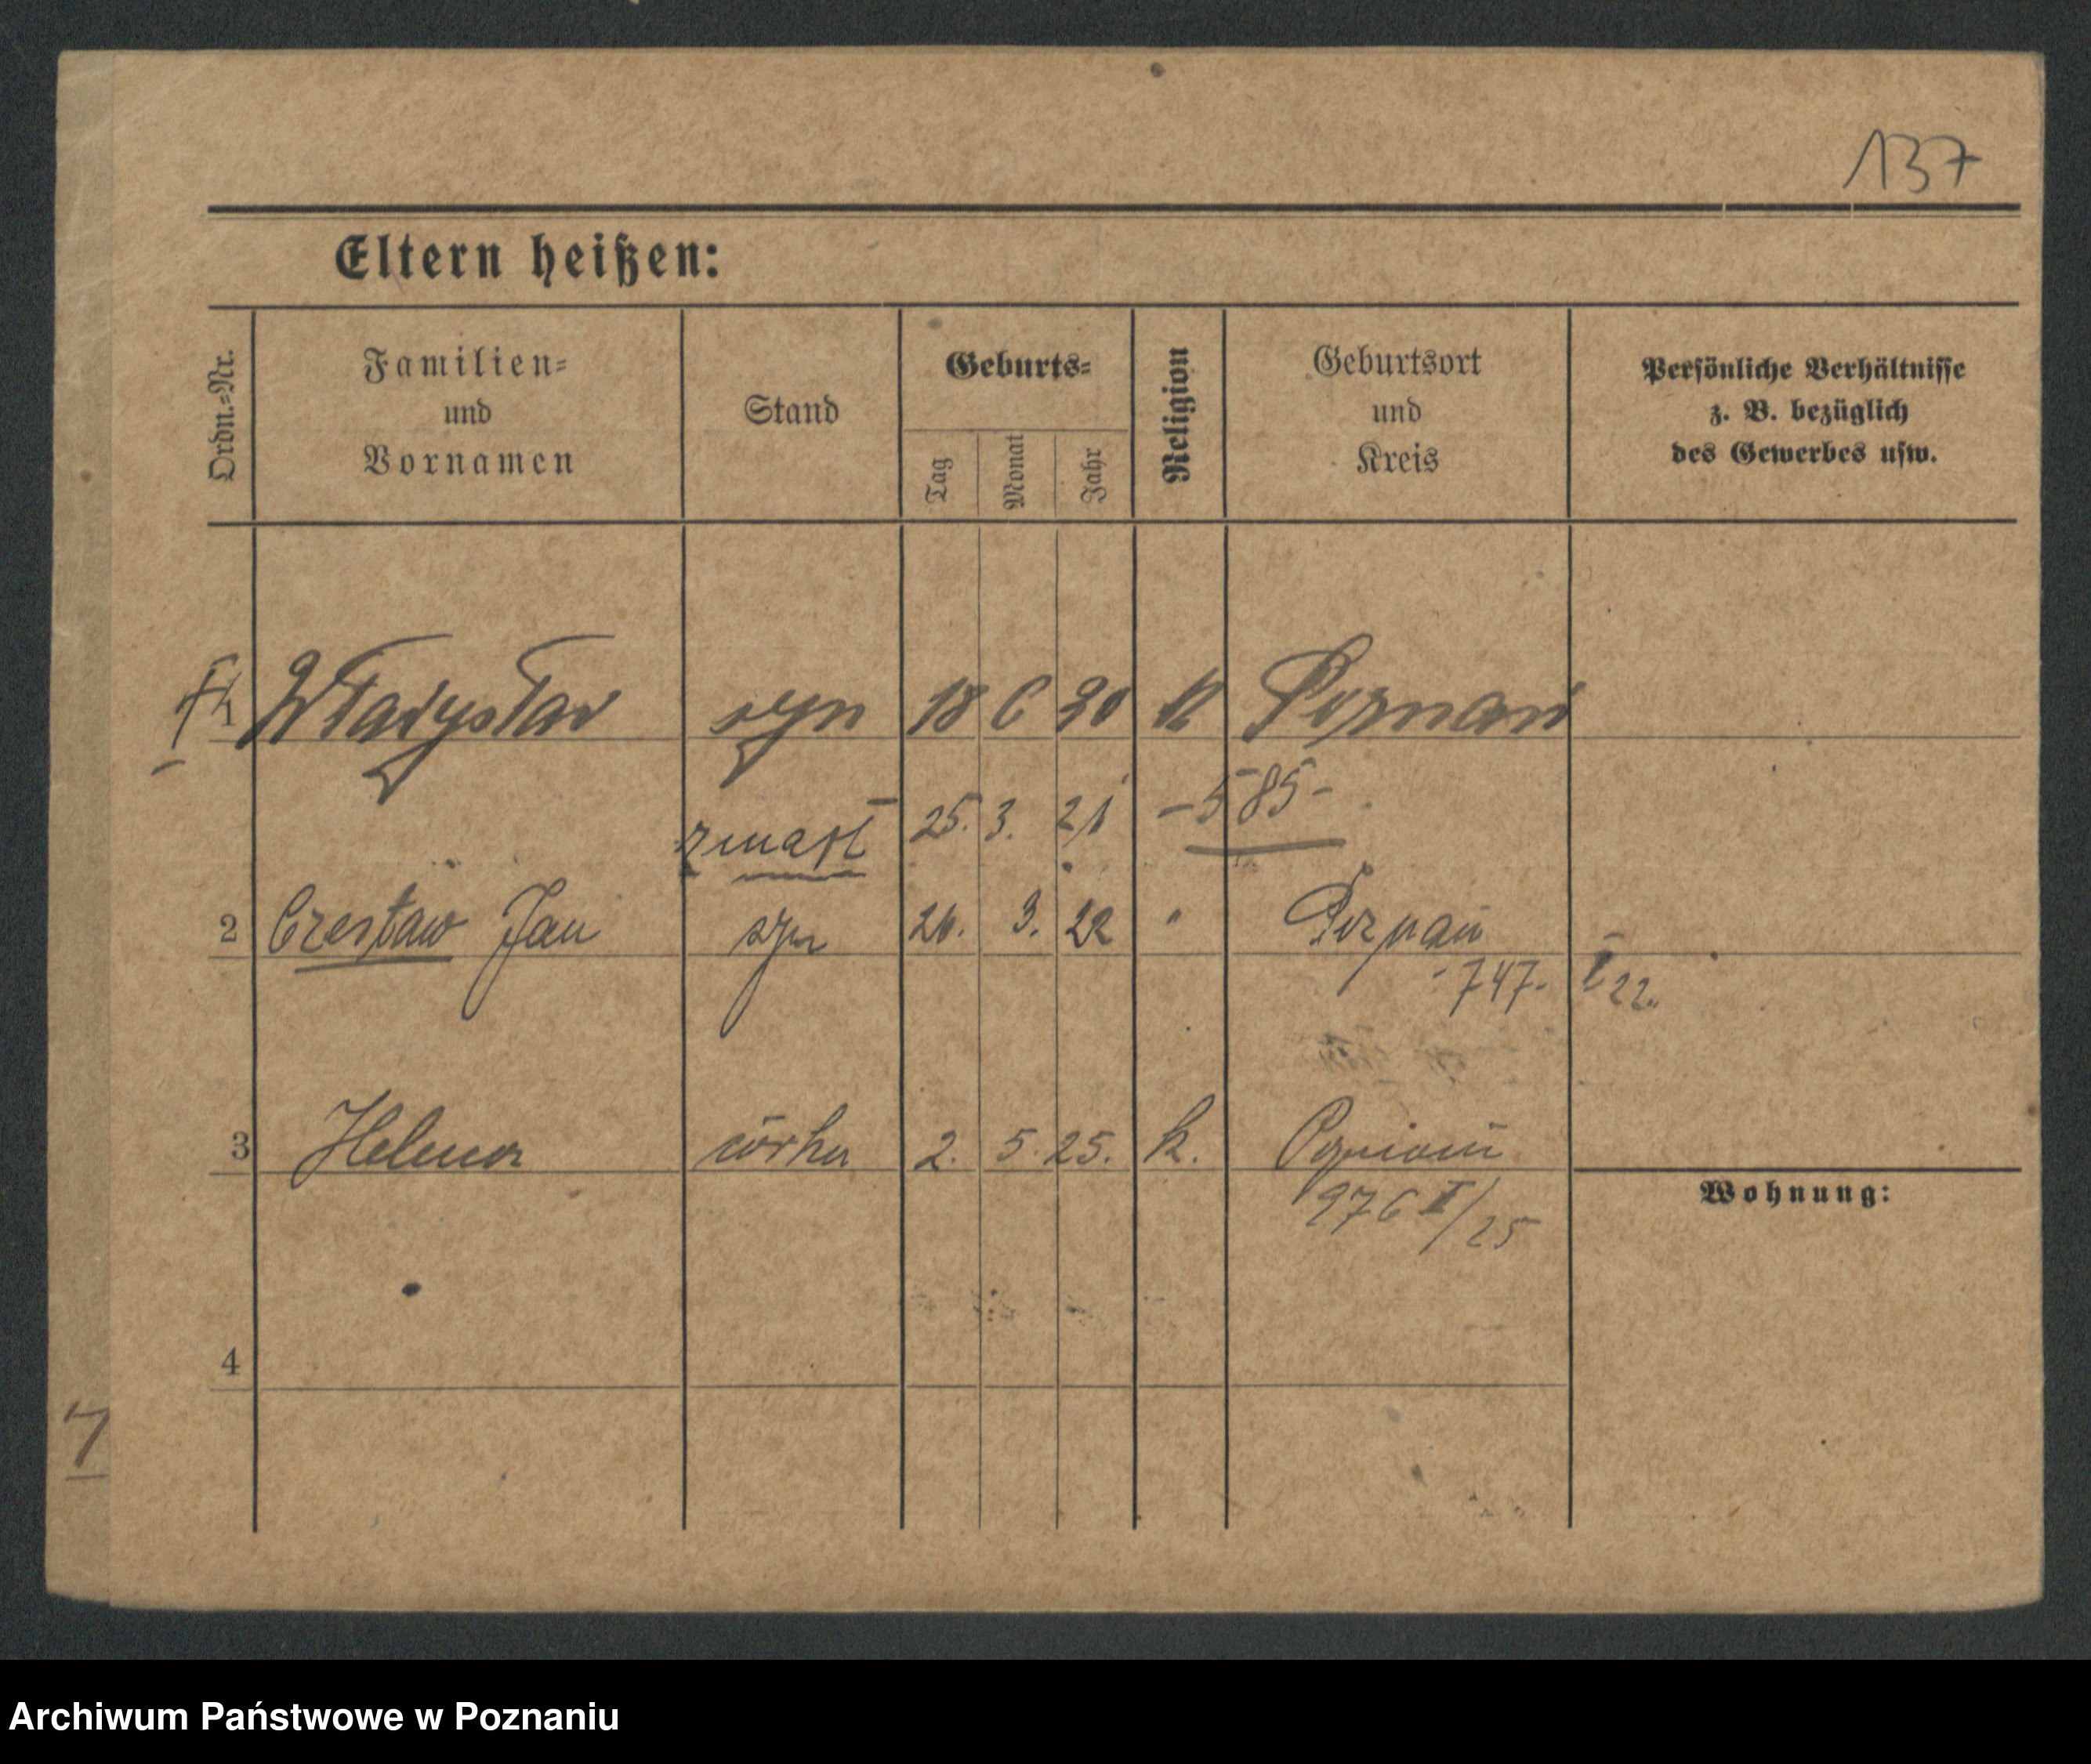 137
Eltern heißen:
Ordn.=Nr. Familien= und Vornamen Stand Geburts= Tag Monat Jahr Religion Geburtsort und Kreis Persönliche Verhältnisse z. B. bezüglich des Gewerbes usw.
1 Władysław syn 18 6 20 k Poznań
zmarł 25. 3. 21 -585-
2 Czesław Jan syn 26. 3. 22 " Poznań
-747- I 22.
3 Helena córka 2. 5. 25. k. Poznań
Wohnung:
976 I/25
4
7
Archiwum Państwowe w Poznaniu